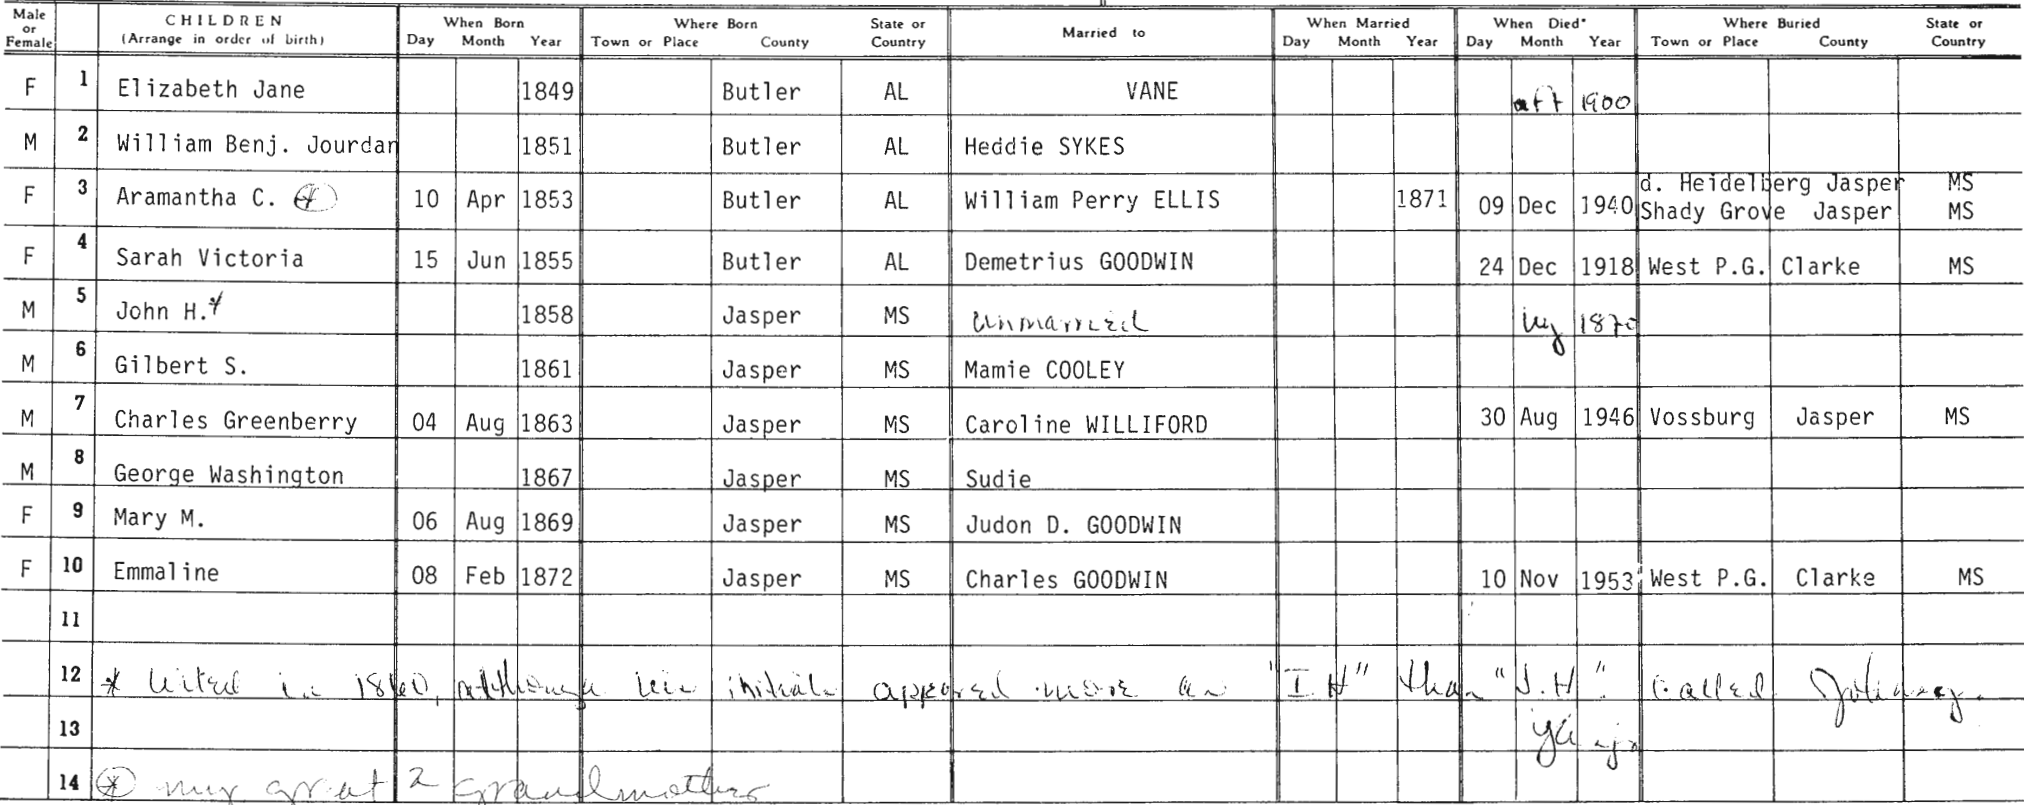 Male or Female CHILDREN (Arrange in order of birth) When Born Day Month Year Where Born Town or Place County State or Country Married to When Married Day Month Year When Died* Day Month Year Where Buried Town or Place County State or Country
F 1 Elizabeth Jane 1849 Butler AL VANE aft 1900
M 2 William Benj. Jourdan 1851 Butler AL Heddie SYKES
F 3 Aramantha C. * 10 Apr 1853 Butler AL William Perry ELLIS 1871 09 Dec 1940 d. Heidelberg Jasper MS
Shady Grove Jasper MS
F 4 Sarah Victoria 15 Jun 1855 Butler AL Demetrius GOODWIN 24 Dec 1918 West P.G. Clarke MS
M 5 John H.* 1858 Jasper MS Unmarried by 1870
M 6 Gilbert S. 1861 Jasper MS Mamie COOLEY
M 7 Charles Greenberry 04 Aug 1863 Jasper MS Caroline WILLIFORD 30 Aug 1946 Vossburg Jasper MS
M 8 George Washington 1867 Jasper MS Sudie
F 9 Mary M. 06 Aug 1869 Jasper MS Judon D. GOODWIN
F 10 Emmaline 08 Feb 1872 Jasper MS Charles GOODWIN 10 Nov 1953 West P.G. Clarke MS
11
12 * Listed in 1860, although his initials appeared more as "I.H" than "J.H". Called Johnny.
13
14 * my great 2 grandmother